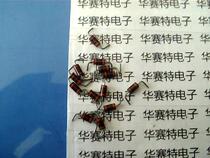 华赛特电子 华赛特电子
华赛特电子 华赛特电子
华赛特电子 华赛特电子
华赛特电子
华赛特电子
华赛特电子
华赛特电子
华赛特电子 华赛特电子
华赛特电子 华赛特电子